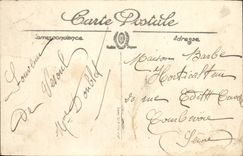 Carte Postale
Correspondance
Adresse
Souvenir
De Vesoul
Maison Barbe
Horticulteur
rue Edith Cavell
Courbevoie
Seine